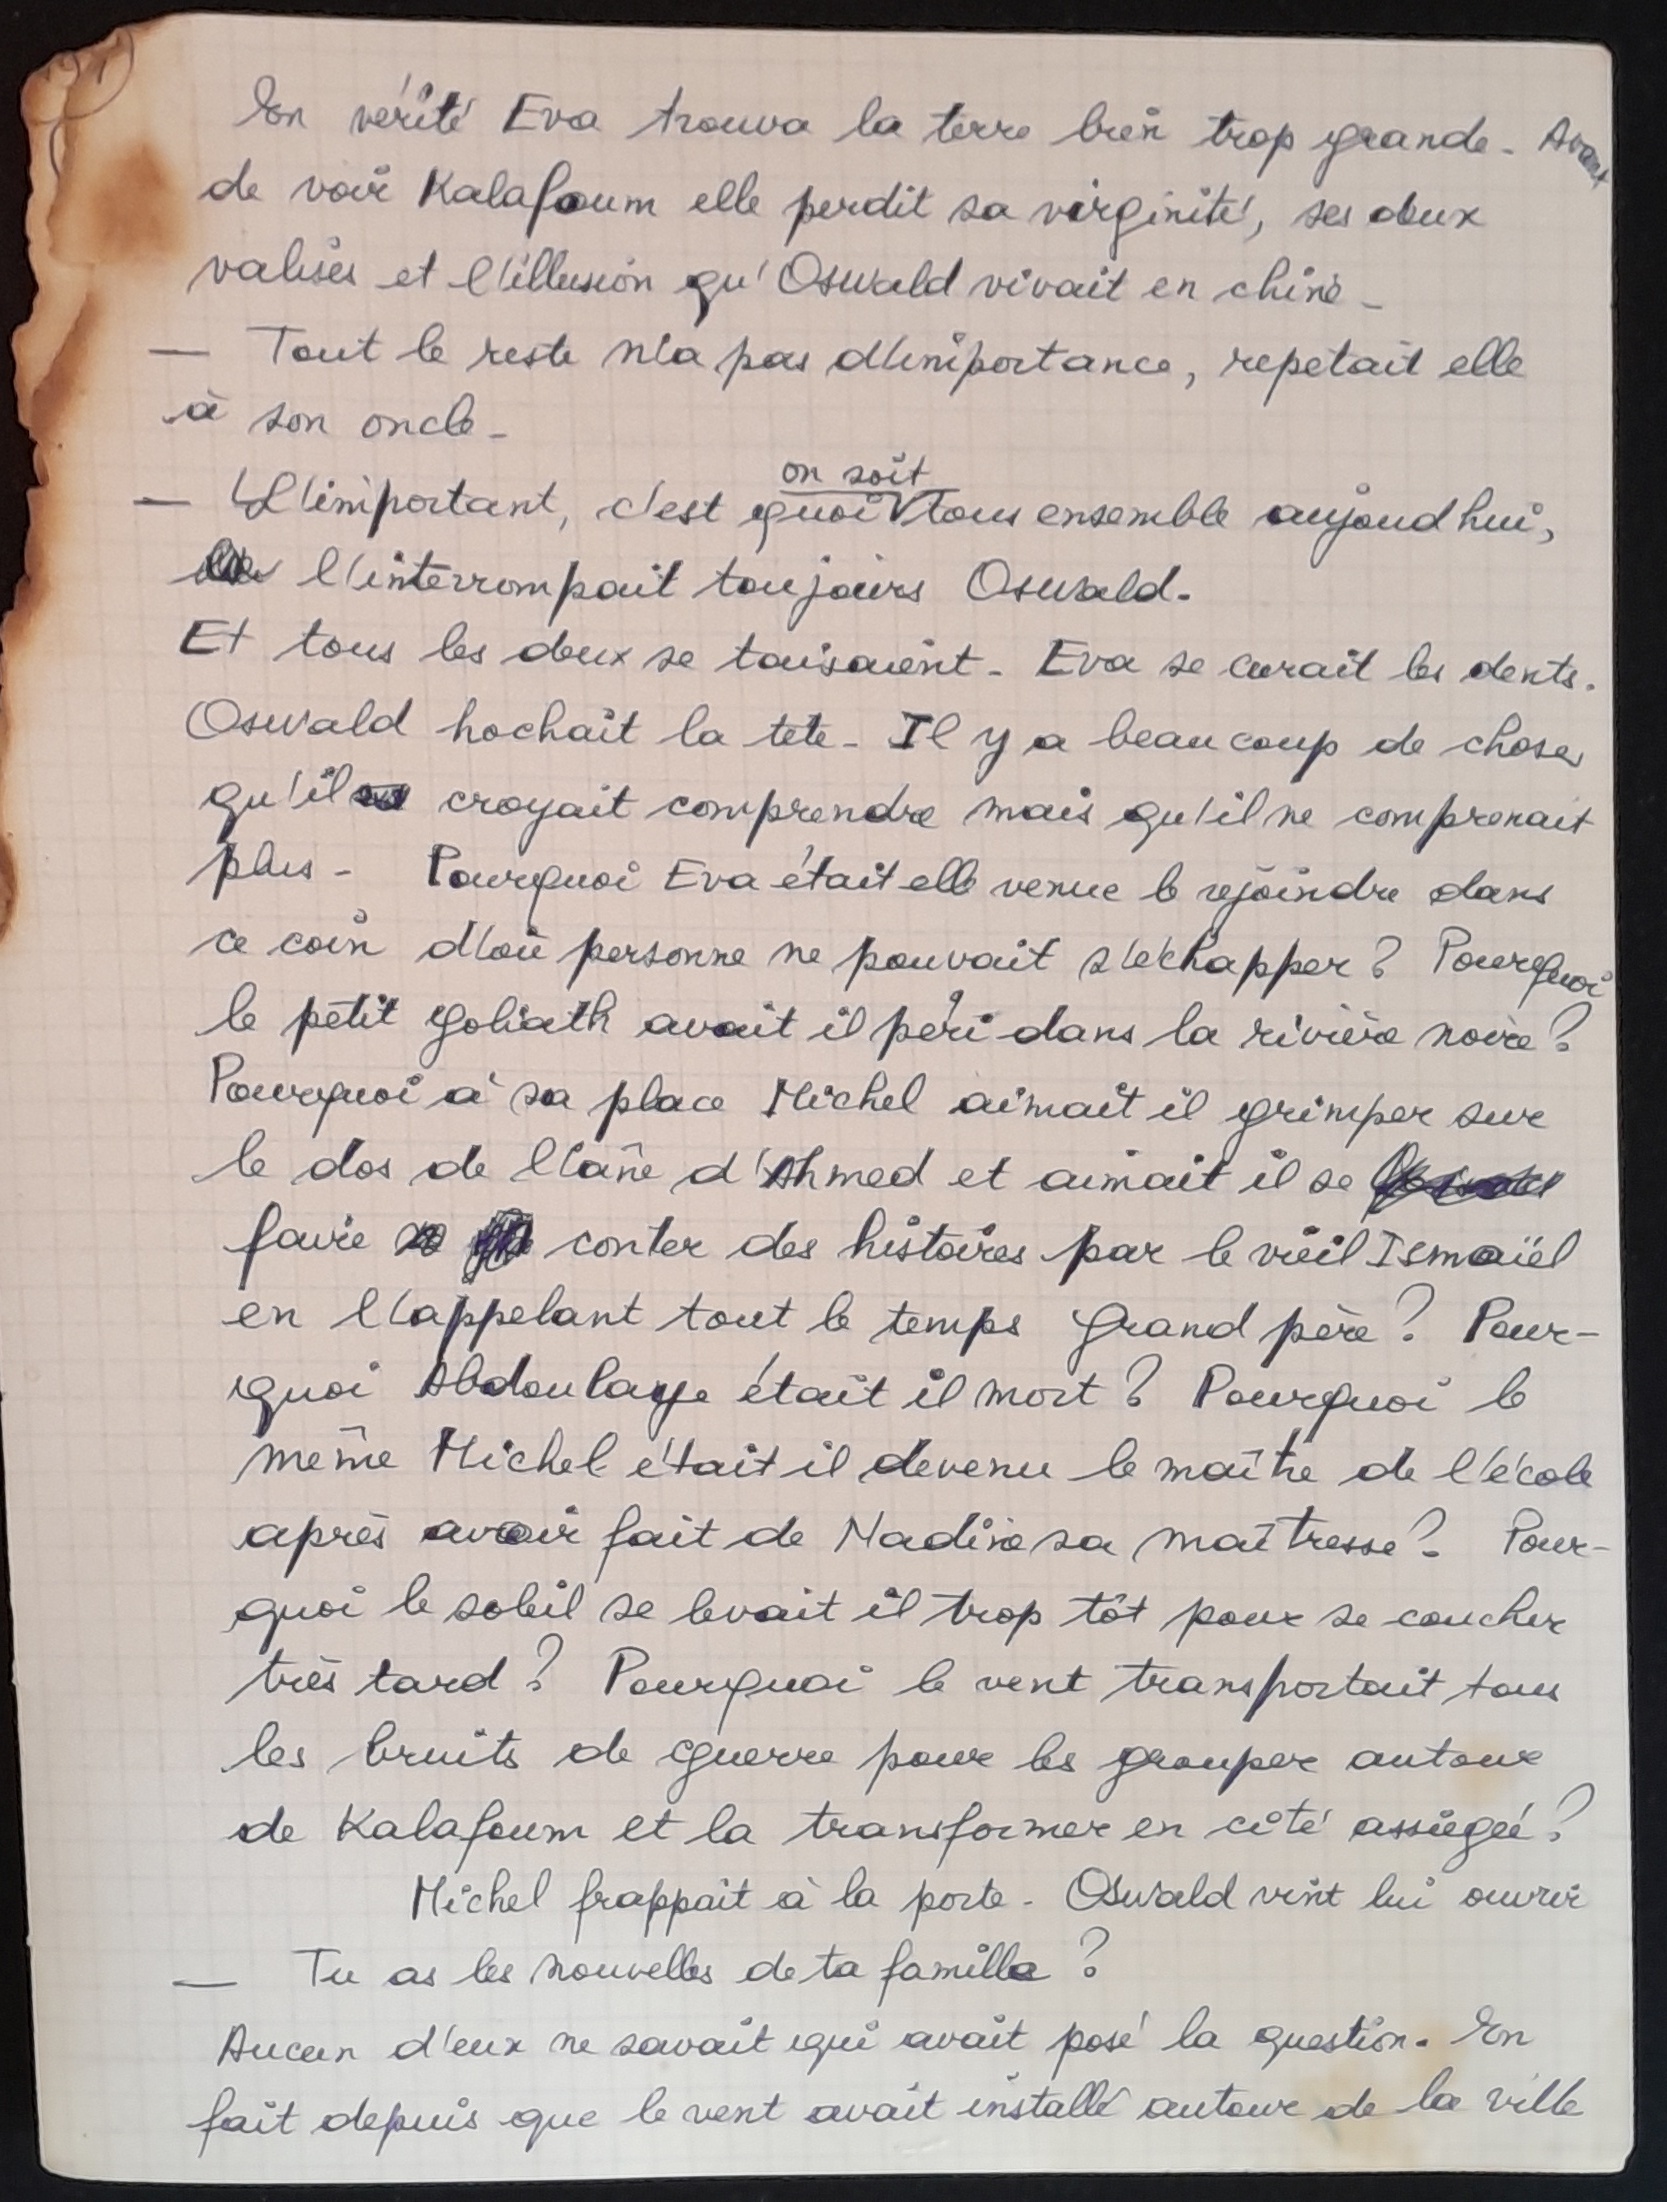 En vérité Eva trouva la terre bien trop grande - Avant
de voir Kalafoum elle perdit sa virginité, ses deux
valises et l'illusion qu'Oswald vivait en chine -
— Tout le reste n'a pas d'importance, repetait elle
à son oncle -
on soit
— L'important, c'est quoi tous ensemble aujoud hui,
l'interrompait toujours Oswald.
Et tous les deux se taisaient - Eva se curait les dents.
Oswald hochait la tete - Il y a beaucoup de choses
qu'il croyait comprendre mais qu'il ne comprenait
plus - Pourquoi Eva était elle venue le rejoindre dans
ce coin d'où personne ne pouvait s'échapper ? Pourquoi
le petit goliath avait il péri dans la rivière noire ?
Pourquoi à sa place Michel aimait il grimper sur
le dos de l'âne d'Ahmed et aimait il se
faire conter des histoires par le vieil Ismaïel
en l'appelant tout le temps grand père ? Pour-
quoi Abdoulaye était il mort ? Pourquoi le
même Michel était il devenu le maître de l'école
après avoir fait de Nadine sa maîtresse ? Pour-
quoi le soleil se levait il trop tôt pour se coucher
très tard ? Pourquoi le vent transportait tous
les bruits de guerre pour les grouper autour
de Kalafoum et la transformer en cité assiégée ?
Michel frappait à la porte - Oswald vint lui ouvrir
— Tu as les nouvelles de ta famille ?
Aucun d'eux ne savait qui avait posé la question. En
fait depuis que le vent avait installé autour de la ville